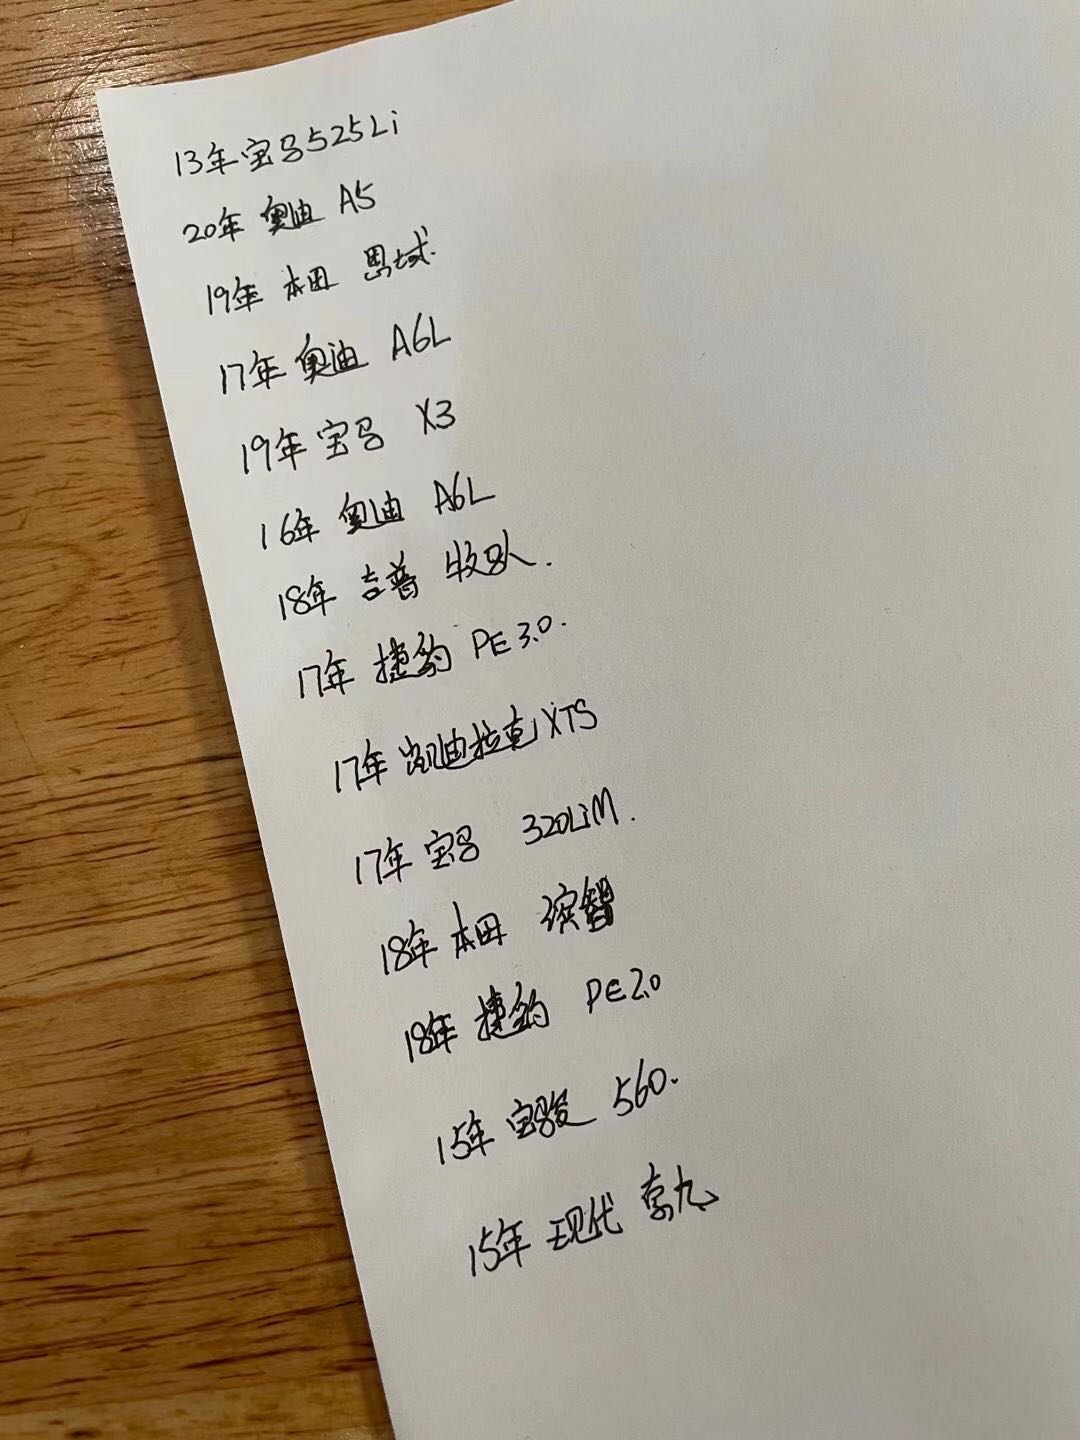 13年宝马525Li
20年 奥迪 A5
19年 本田 思域.
17年 奥迪 A6L
19年 宝马 X3
16年 奥迪 A6L
18年 吉普 牧马人.
17年 捷豹 PE 3.0.
17年 凯迪拉克XTS
17年 宝马 320LiM.
18年 本田 缤智
18年 捷豹 PE2.0
15年 宝骏 560.
15年 现代 索九